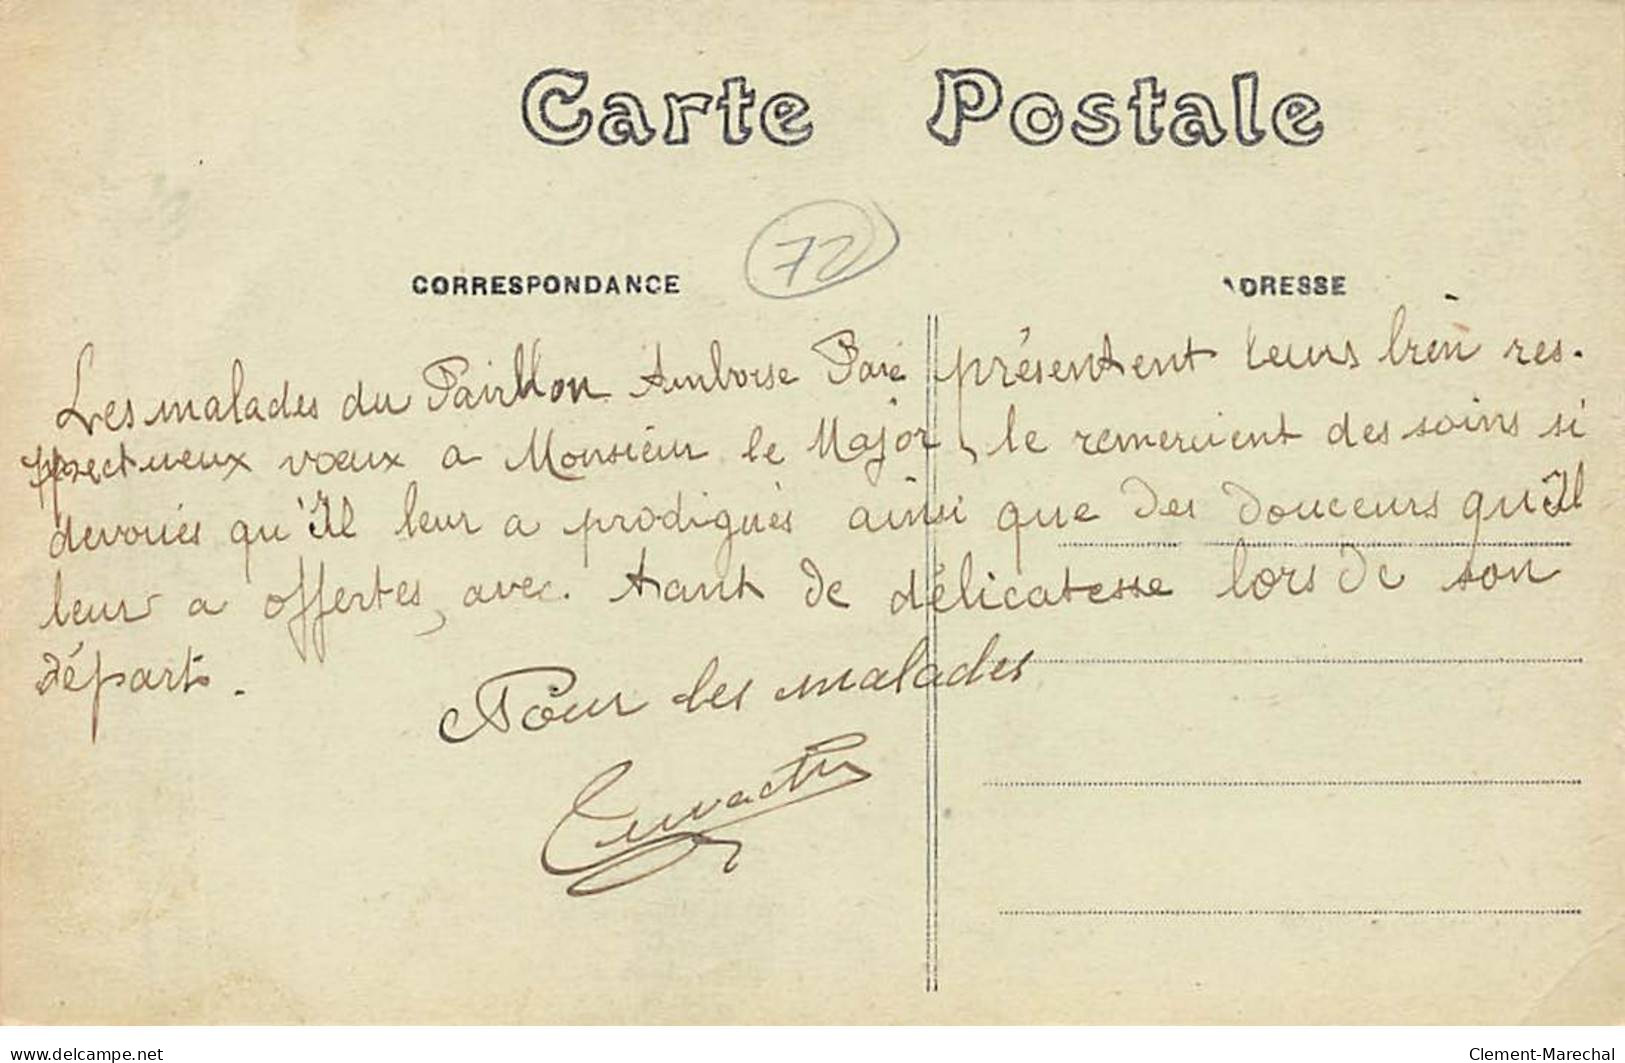 Carte Postale
72
CORRESPONDANCE
ADRESSE
Les malades du Pavillon Amborse Paré présentent leurs bien res-
pectueux vœux a Monsieur le Major, le remercient des soins si
devoués qu'Il leur a prodigués ainsi que des douceurs qu'Il
leur a offertes, avec tant de délicatesse lors de son
départ.
Pour les malades
delcampe.net
Clement-Marechal